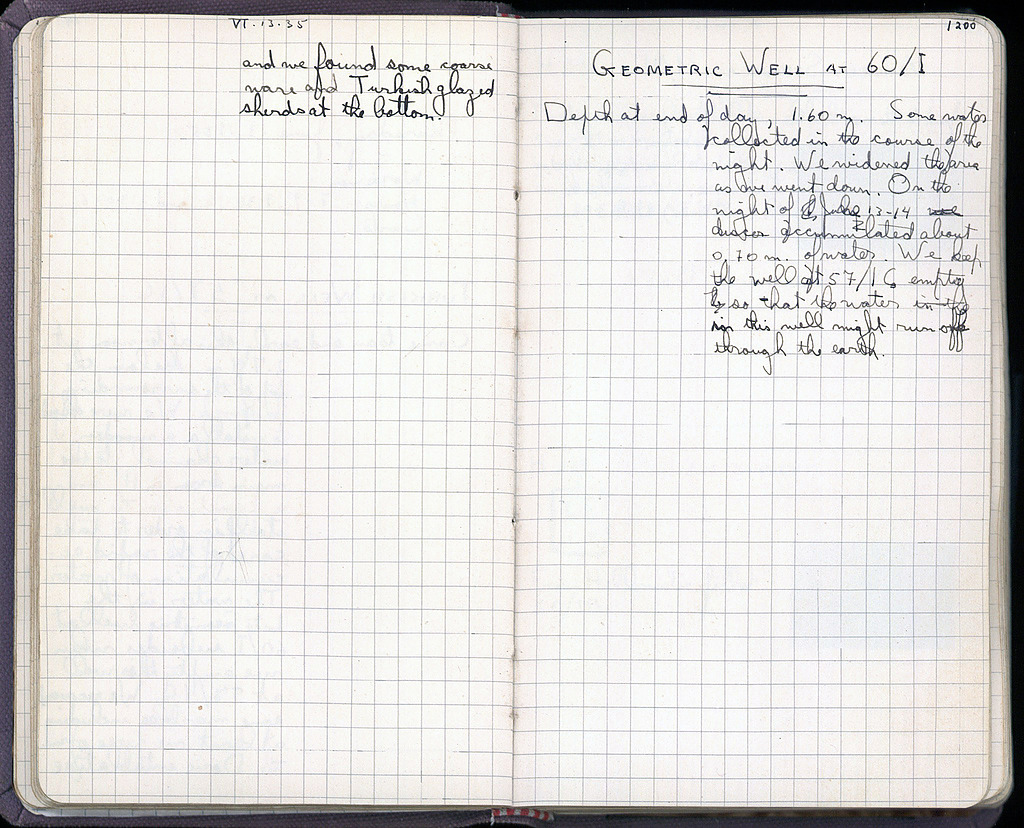 VI.13.35
and we found some coarse
ware and Turkish glazed
sherds at the bottom.
1200
GEOMETRIC WELL AT 60/I
Depth at end of day, 1.60 m. Some water
collected in the course of the
night. We widened the area
as we went down. On the
night of June 13-14 we
accumulated about
0.70 m. of water. We keep
the well at 57/IG empty
so that the water in the
in this well might run off
through the earth.